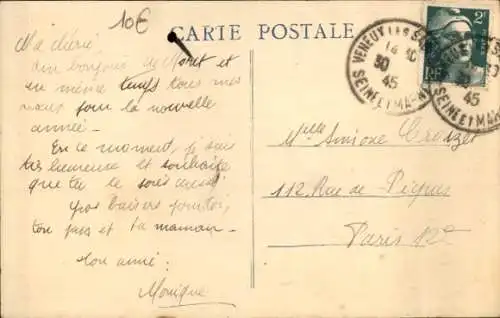 10€
CARTE POSTALE
Ma chérie,
Un bonjour de Moret et
en même temps tous mes
vœux pour la nouvelle
année.
En ce moment, je suis
très heureuse et souhaite
que tu le sois aussi
gros baisers pour toi,
ton papa et ta maman.
Ton amie :
Monique
Melle Simone
112 Rue de Picpus
Paris 12e
2F
RF
VENEUX LES S
14
30
45
SEINE ET MARNE
45
SEINE ET MARNE